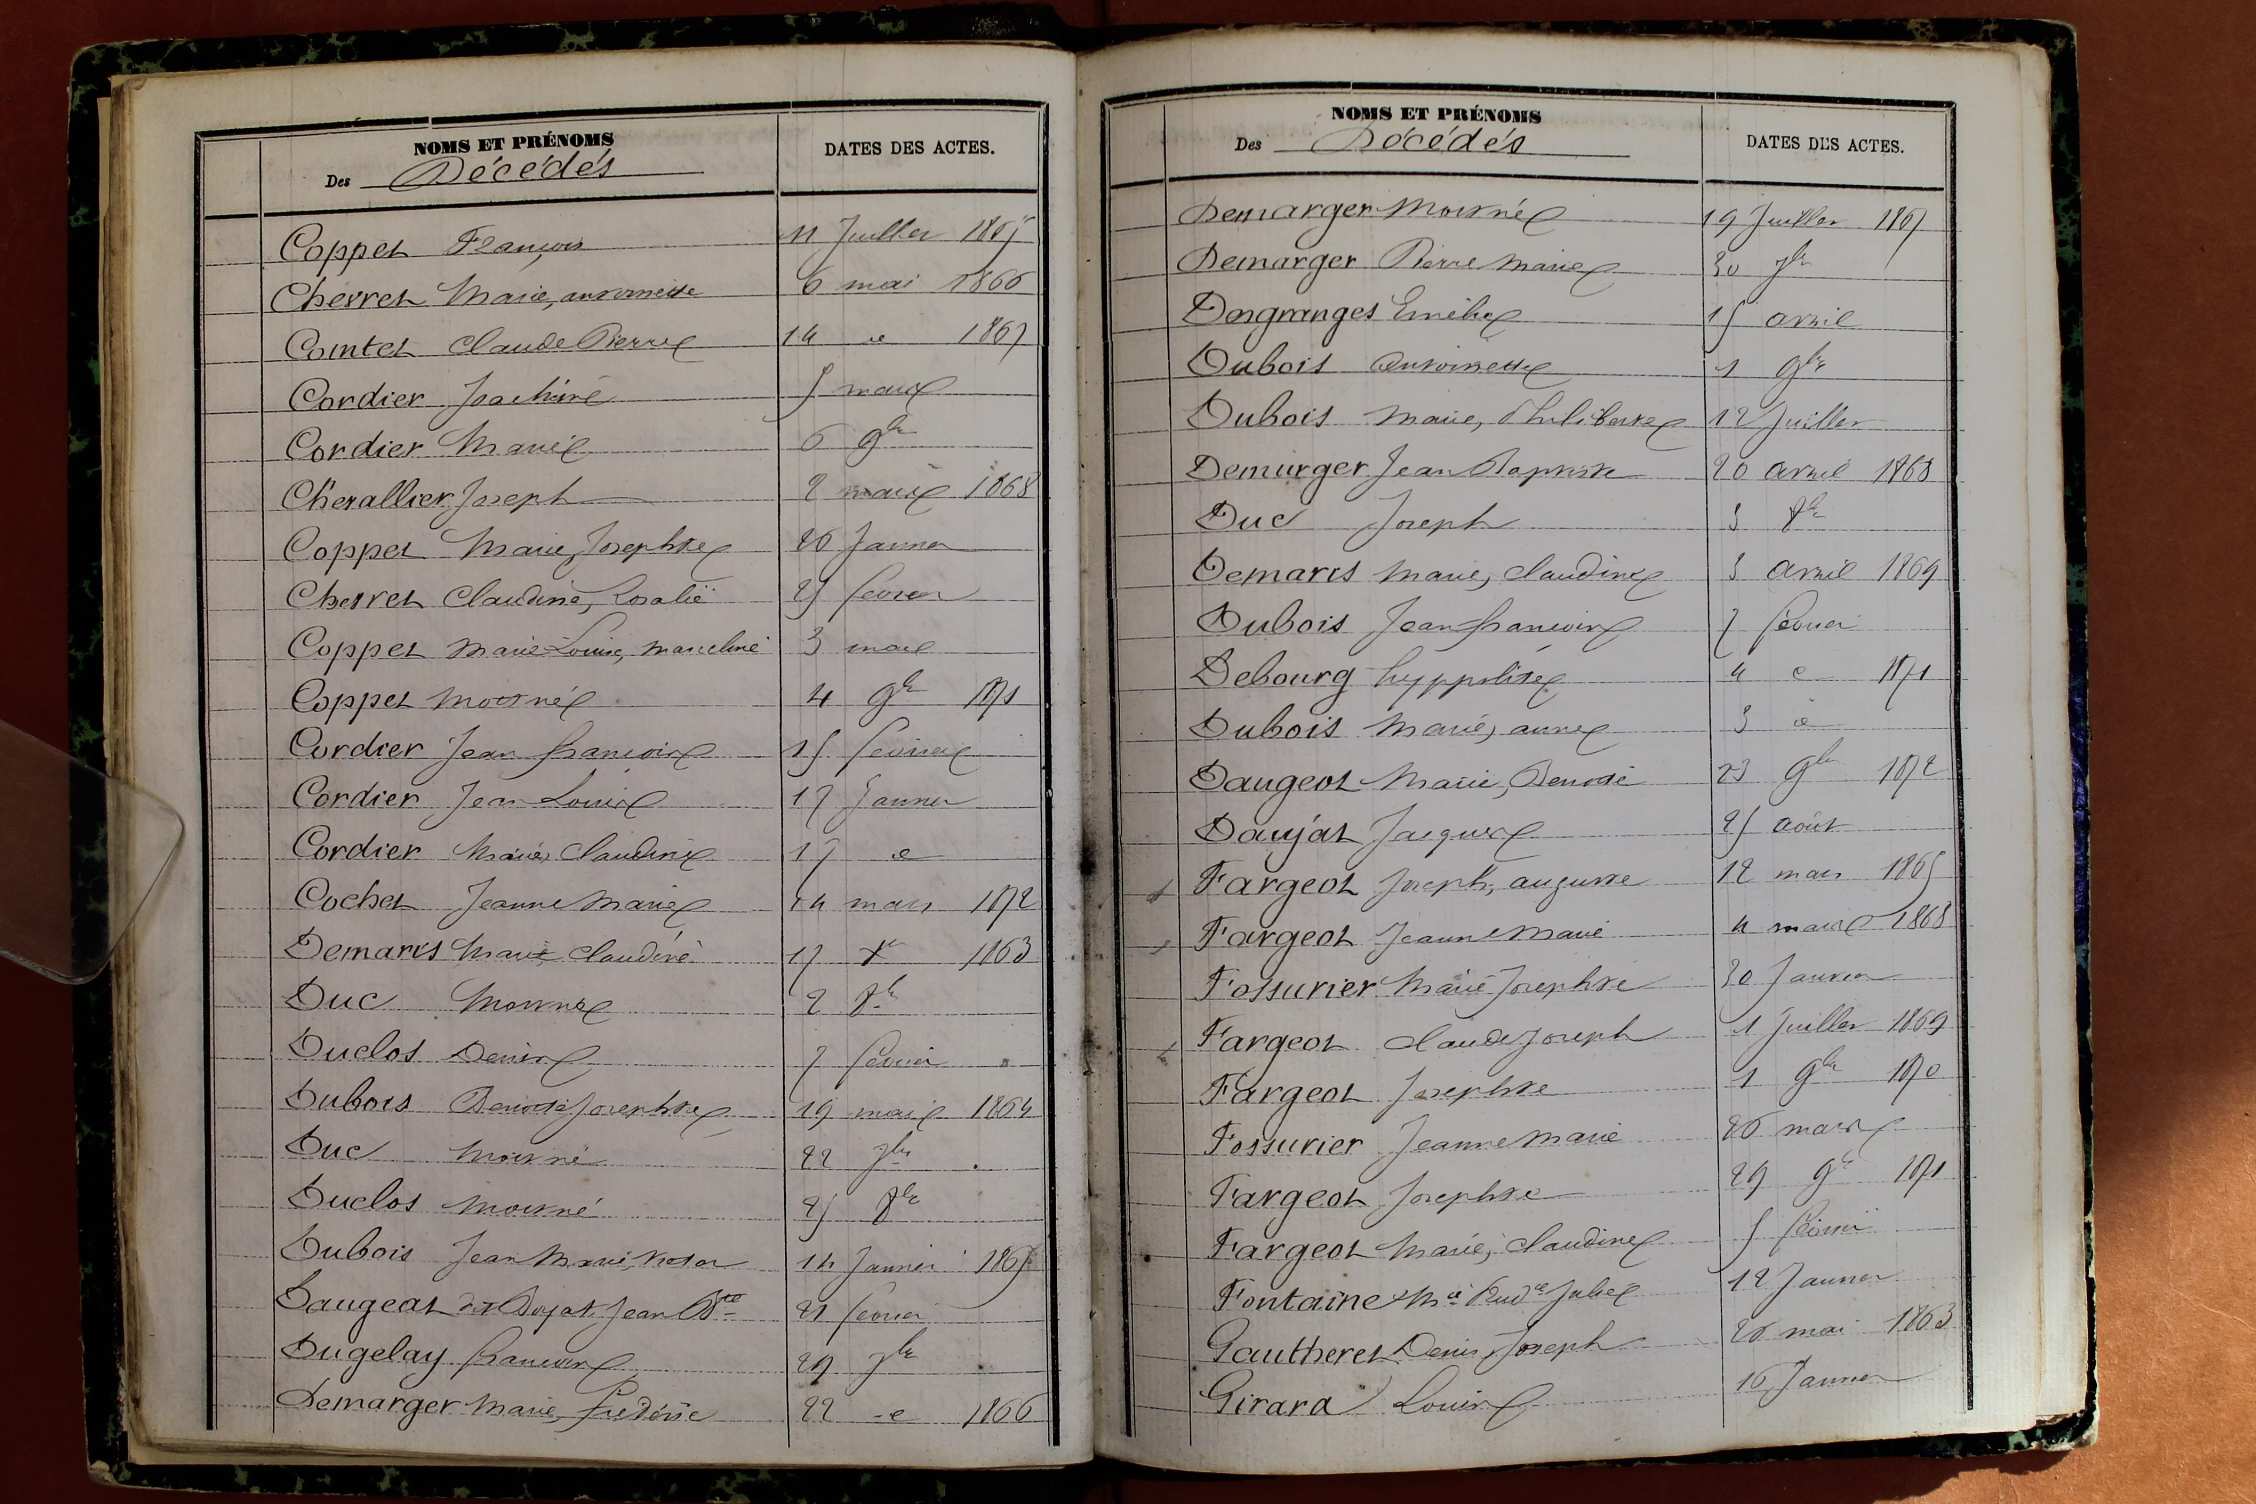 NOMS ET PRÉNOMS
Des Décédés
DATES DES ACTES.
Coppet François 11 Juillet 1865
Chevret Marie, antoinette 6 mai 1866
Comtet Claude Pierre 14 d 1867
Cordier Joachim 5 mars
Cordier Marie 6 9bre
Chevallier Joseph 2 mars 1868
Coppet Marie, Josephte 26 Janvier
Chevret Claudine, Rosalie 25 fevrier
Coppet Marie-Louise, marceline 3 mars
Coppet mort né 4 9bre 1871
Cordier Jean francois 15 fevrier
Cordier Jean Louis 17 Janvier
Cordier Marie, Claudine 17 d
Cochet Jeanne Marie 14 mars 1872
Demaris Marie Claudine 17 Xre 1863
Duc Mort né 2 8bre
Duclos Denis 7 fevrier
Dubois Benoite Josephte 19 mars 1864
Duc mort né 22 7bre
Duclos mort né 25 8bre
Dubois Jean Marie, victor 14 Janvier 1865
Daugeat dit Dujat Jean Bte 21 fevrier
Dugelay francois 29 7bre
Demarger Marie, 22 d 1866
NOMS ET PRÉNOMS
Des Décédés
DATES DES ACTES.
Demarger Mort né 19 Juillet 1867
Demarger Pierre Marie 30 7bre
Desgranges Emélie 15 avril
Dubois antoinette 1 9bre
Dubois Marie, Philiberte 12 Juillet
Demurger Jean Baptiste 20 avril 1868
Duc Joseph 3 8bre
Demaris Marie, Claudine 3 avril 1869
Dubois Jean francois 7 fevrier
Debourg hyppolite 4 d 1871
Dubois Marie, anne 3 d
Daugeot Marie, Benoite 23 9bre 1872
Daujat Jacques 25 août
Fargeot Joseph, auguste 12 mars 1865
Fargeot Jeanne Marie 4 mars 1868
Fossurier Marie Josephte 30 Janvier
Fargeot Claude Joseph 1 Juillet 1869
Fargeot Josephte 1 9bre 1870
Fossurier Jeanne Marie 26 mars
Fargeot Josephte 29 9bre 1871
Fargeot Marie, Claudine 5 fevrier
Fontaine Mie Julie 12 Janvier
Gautheret Denis, Joseph 26 mai 1863
Girard Louis 16 Janvier